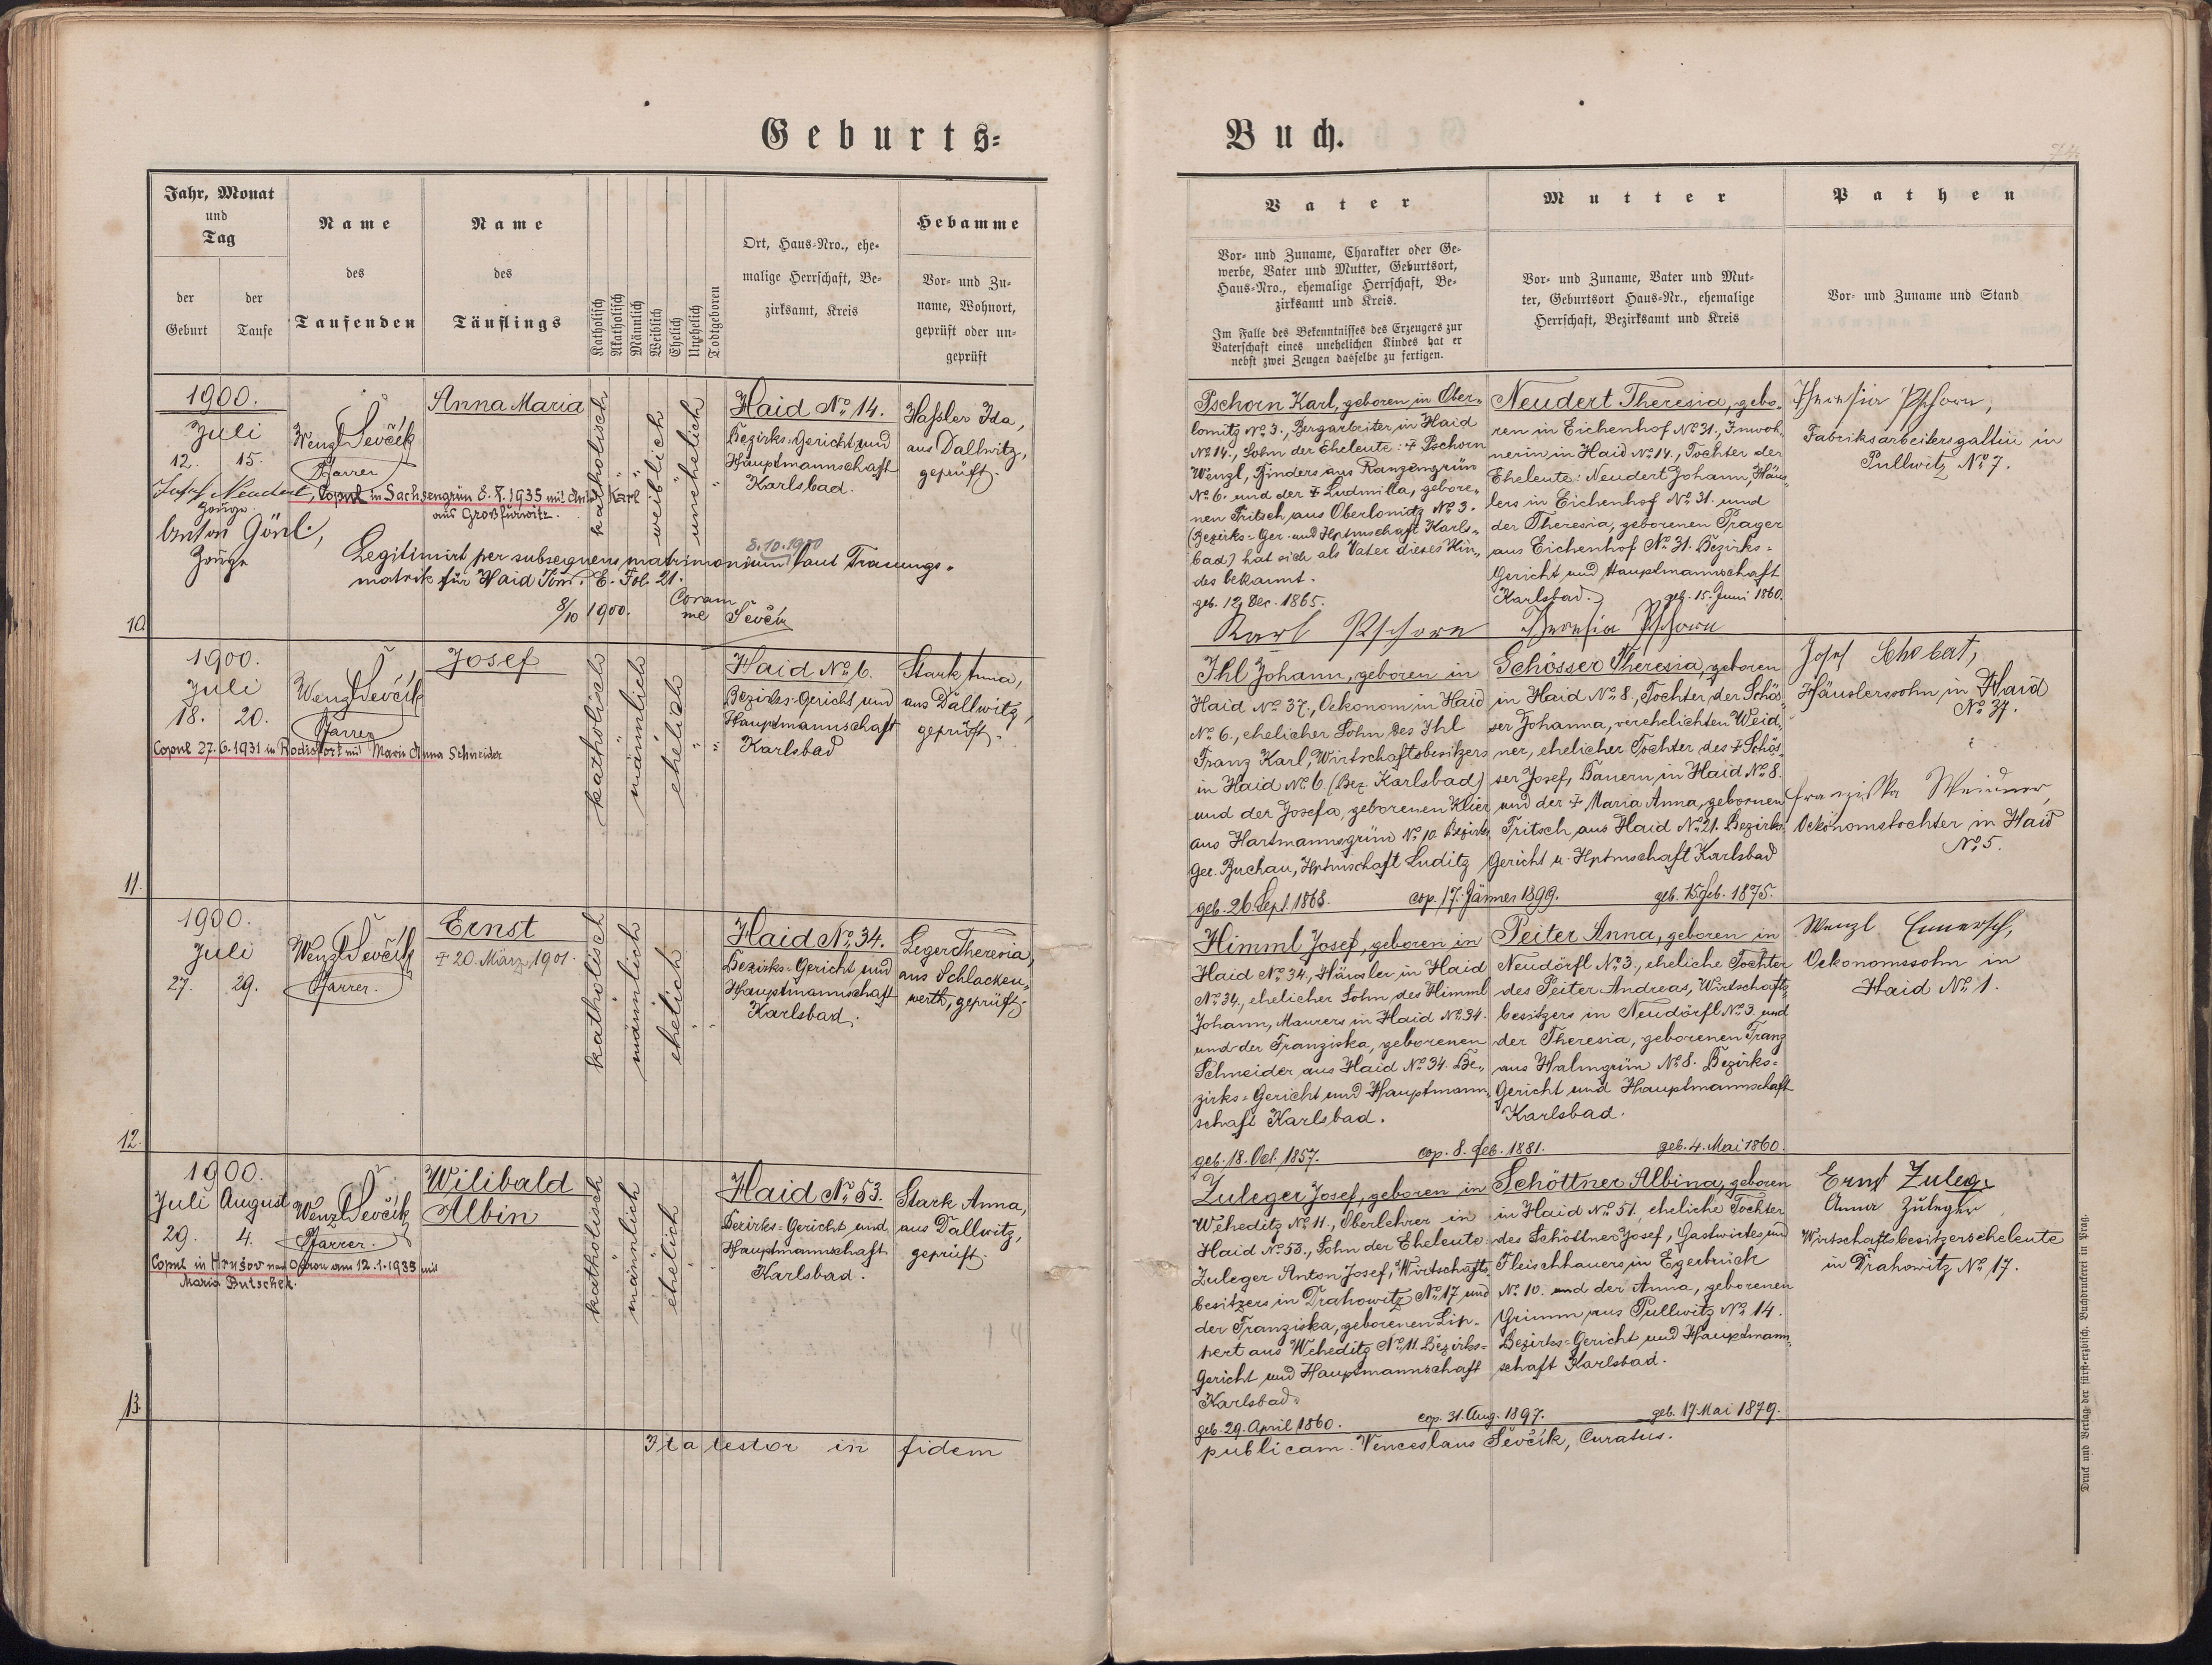 Geburts=
Buch.
Jahr, Monat
und
Tag
der
Geburt
der
Taufe
Name
des
Taufenden
Name
des
Täuflings
Katholisch
Akatholisch
Männlich
Weiblich
Ehelich
Unehelich
Todtgeboren
Ort, Haus=Nro., ehe=
malige Herrschaft, Be=
zirksamt, Kreis
Hebamme
Vor= und Zu=
name, Wohnort,
geprüft oder un=
geprüft
Vater
Vor= und Zuname, Charakter oder Ge=
werbe, Vater und Mutter, Geburtsort,
Haus=Nro., ehemalige Herrschaft, Be=
zirksamt und Kreis.
Im Falle des Bekenntnisses des Erzeugers zur
Vaterschaft eines unehelichen Kindes hat er
nebst zwei Zeugen dasselbe zu fertigen.
Mutter
Vor= und Zuname, Vater und Mut=
ter, Geburtsort Haus=Nr., ehemalige
Herrschaft, Bezirksamt und Kreis
Pathen
Vor= und Zuname und Stand
1900.
Juli
12. 15.
Wenzl Ševčík
Pfarrer
Anna Maria
katholisch
weiblich
unehelich
Haid No 14.
Bezirks-Gericht und
Hauptmannschaft
Karlsbad.
Haßler Ida,
aus Dallwitz,
geprüft.
Josef Neudert,
Zeuge
Copul in Sachsengrün 8.X.1935 mit Anton Karl
aus Großfürwitz.
Anton Gönl,
Zeuge
8.10.1900
Legitimirt per subsequens matrimonium laut Trauungs=
matrik für Haid Tom. E. Fol. 21.
8/10 1900.
Coram
me Ševčík
10.
Pschorn Karl, geboren in Ober=
lomitz No 3., Bergarbeiter in Haid
No 14., Sohn der Eheleute: † Pschorn
Wenzl, Binders aus Ranzengrün
No 6. und der † Ludmilla, gebore=
nen Fritsch aus Oberlomitz No 3.
(Bezirks=Ger. und Hptmschaft Karls=
bad) hat sich als Vater dieses Kin=
des bekannt.
geb. 12. Dec. 1865.
Karl Pschorn
Neudert Theresia, gebo=
ren in Eichenhof No 31., Inwoh=
nerin in Haid No 14., Tochter der
Eheleute: Neudert Johann, Häus=
lers in Eichenhof No 31. und
der Theresia, geborenen Prager
aus Eichenhof No 31. Bezirks=
Gericht und Hauptmannschaft
Karlsbad.
geb. 15. Juni 1860.
Theresia Pschorn
Theresia Pschorn,
Fabriksarbeitersgattin in
Pullwitz No 7.
1900.
Juli
18. 20.
Wenzl Ševčík
Pfarrer
Josef
katholisch
männlich
ehelich
Haid No 6.
Bezirks-Gericht und
Hauptmannschaft
Karlsbad
Stark Anna,
aus Dallwitz,
geprüft.
Copul 27.6.1931 in Rodisfort mit Marie Anna Schneider
11.
Ihl Johann, geboren in
Haid No 37., Oekonom in Haid
No 6., ehelicher Sohn des Ihl
Franz Karl, Wirtschaftsbesitzers
in Haid No 6. (Bez. Karlsbad)
und der Josefa, geborenen Klier
aus Hartmannsgrün No 10. Bezirks
Ger. Buchau, Hptmschaft Luditz
geb. 26. Sept. 1868.
cop. 17. Jänner 1899.
Schösser Theresia, geboren
in Haid No 8., Tochter der Schös=
ser Johanna, verehelichten Weid=
ner, ehelicher Tochter des † Schös=
ser Josef, Bauern in Haid No 8.
und der † Maria Anna, gebornen
Fritsch aus Haid No 21. Bezirks=
Gericht u. Hptmschaft Karlsbad
geb. 15. Feb. 1875.
Josef Schobat,
Häuslerssohn in Haid
No 37.
Franziska Weidner,
Oekonomstochter in Haid
No 5.
1900.
Juli
27. 29.
Wenzl Ševčík
Pfarrer.
Ernst
† 20. März 1901.
katholisch
männlich
ehelich
Haid No 34.
Bezirks-Gericht und
Hauptmannschaft
Karlsbad.
Leger Theresia,
aus Schlacken=
werth, geprüft.
12.
Himml Josef, geboren in
Haid No 34., Häusler in Haid
No 34, ehelicher Sohn des Himml
Johann, Maurers in Haid No 34.
und der Franziska, geborenen
Schneider aus Haid No 34. Be=
zirks=Gericht und Hauptmann=
schaft Karlsbad.
geb. 18. Oct. 1857.
cop. 8. Feb. 1881.
Peiter Anna, geboren in
Neudörfl No 3., eheliche Tochter
des Peiter Andreas, Wirtschafts=
besitzers in Neudörfl No 3. und
der Theresia, geborenen Franz
aus Halmgrün No 8. Bezirks=
Gericht und Hauptmannschaft
Karlsbad.
geb. 4. Mai 1860.
Wenzl Emersch,
Oekonomssohn in
Haid No 1.
1900.
Juli August
29. 4.
Wenzl Ševčík
Pfarrer.
Wilibald
Albin
katholisch
männlich
ehelich
Haid No 53.
Bezirks-Gericht und
Hauptmannschaft
Karlsbad.
Stark Anna,
aus Dallwitz,
geprüft.
Copul in Hrušov nad Odrou am 12.1.1935 mit
Maria Butschek.
13.
Zuleger Josef, geboren in
Weheditz No 11., Oberlehrer in
Haid No 53., Sohn der Eheleute
Zuleger Anton Josef, Wirtschafts=
besitzers in Drahowitz No 17 und
der Franziska, geborenen Lip=
pert aus Weheditz No 11. Bezirks=
Gericht und Hauptmannschaft
Karlsbad.
geb. 29. April 1860.
cop. 31. Aug. 1897.
Schöttner Albina, geboren
in Haid No 51, eheliche Tochter
des Schöttner Josef, Gastwirtes und
Fleischhauers in Egerbrück
No 10. und der Anna, geborenen
Grimm aus Pullwitz No 14.
Bezirks=Gericht und Hauptmann=
schaft Karlsbad.
geb. 17 Mai 1879.
Ernst Zuleger
Anna Zuleger
Wirtschaftsbesitzerseheleute
in Drahowitz No 17.
Ita testor in fidem
publicam. Venceslaus Ševčík, Curatus.
Druck und Verlag der fürst=erzbisch. Buchdruckerei in Prag.